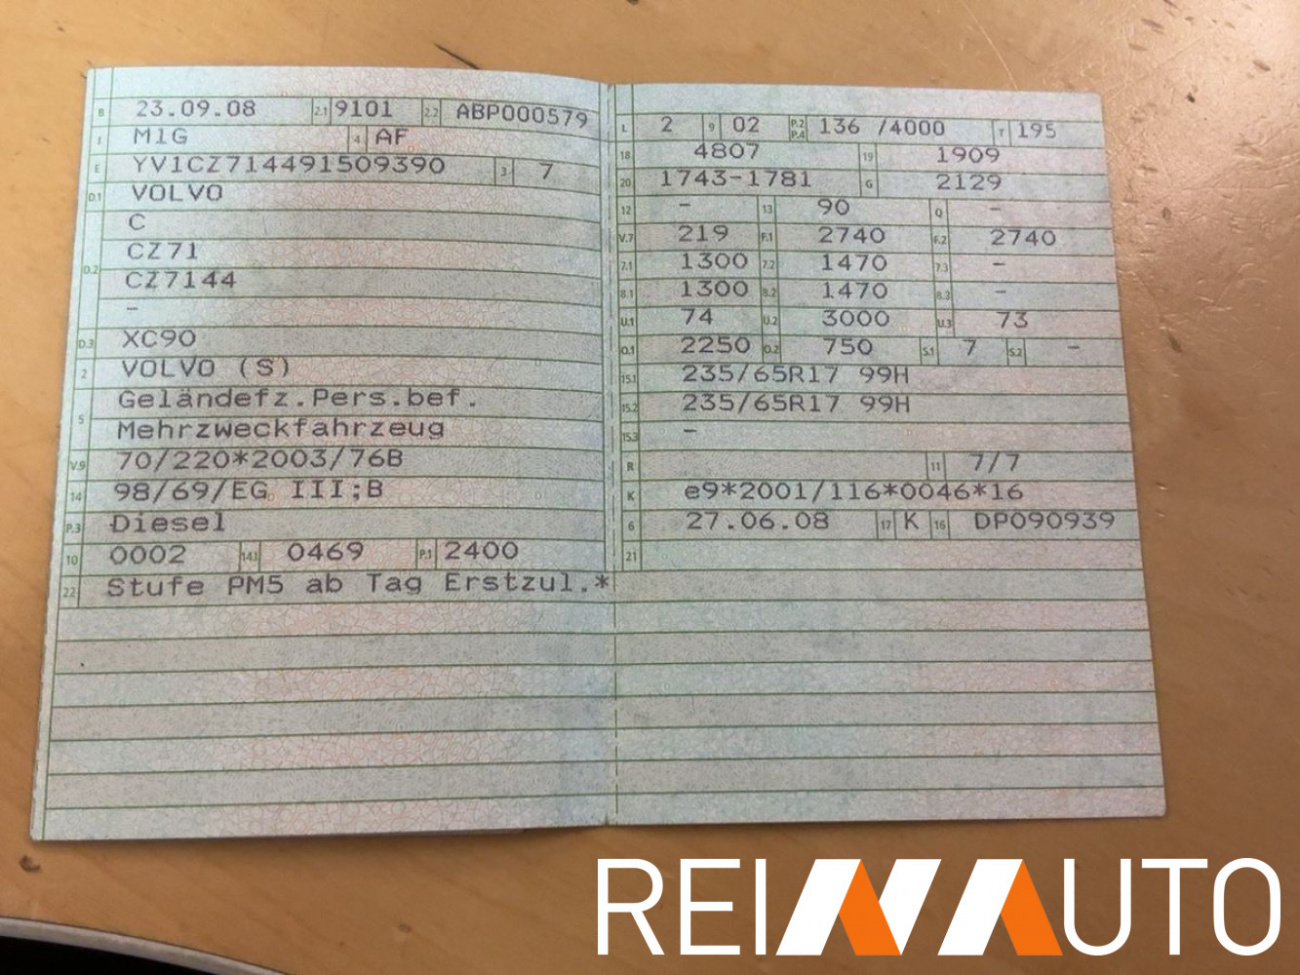 B 23.09.08 2.1 9101 2.2 ABP000579
J M1G 4 AF
E YV1CZ714491509390 3 7
D.1 VOLVO
C
D.2 CZ71
CZ7144
-
D.3 XC90
2 VOLVO (S)
Geländefz.Pers.bef.
5 Mehrzweckfahrzeug
V.9 70/220*2003/76B
14 98/69/EG III;B
P.3 Diesel
10 0002 14.1 0469 P.1 2400
22 Stufe PM5 ab Tag Erstzul.*
L 2 9 02 P.2 P.4 136 /4000 T 195
18 4807 19 1909
20 1743-1781 G 2129
12 - 13 90 Q -
V.7 219 F.1 2740 F.2 2740
7.1 1300 7.2 1470 7.3 -
8.1 1300 8.2 1470 8.3 -
U.1 74 U.2 3000 U.3 73
O.1 2250 O.2 750 S.1 7 S.2 -
15.1 235/65R17 99H
15.2 235/65R17 99H
15.3 -
R 11 7/7
K e9*2001/116*0046*16
6 27.06.08 17 K 16 DP090939
21
REINAUTO